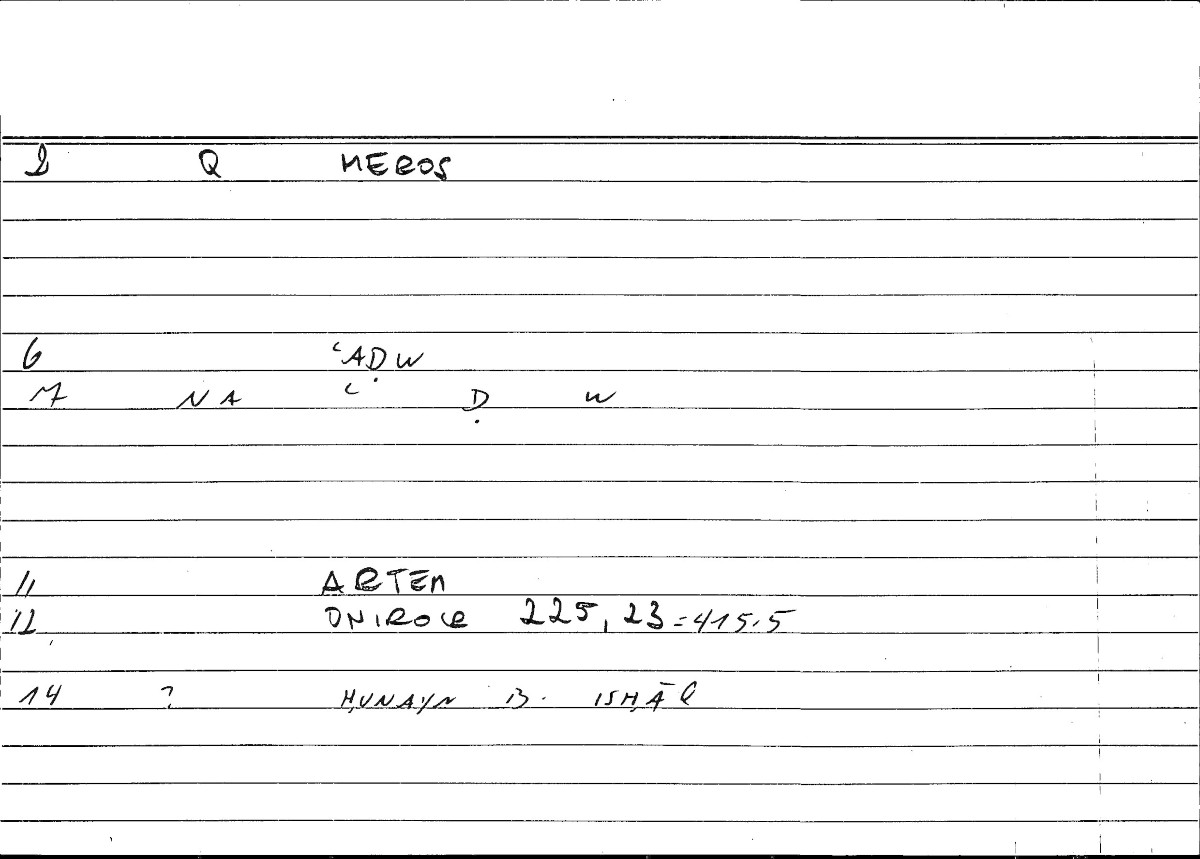 2 Q MEROS
6 ʿAḌW
7 NA ʿ Ḍ W
11 ARTEM
12 ONIROCR 225, 23 = 415.5
14 ? ḤUNAYN B. ISḤĀQ